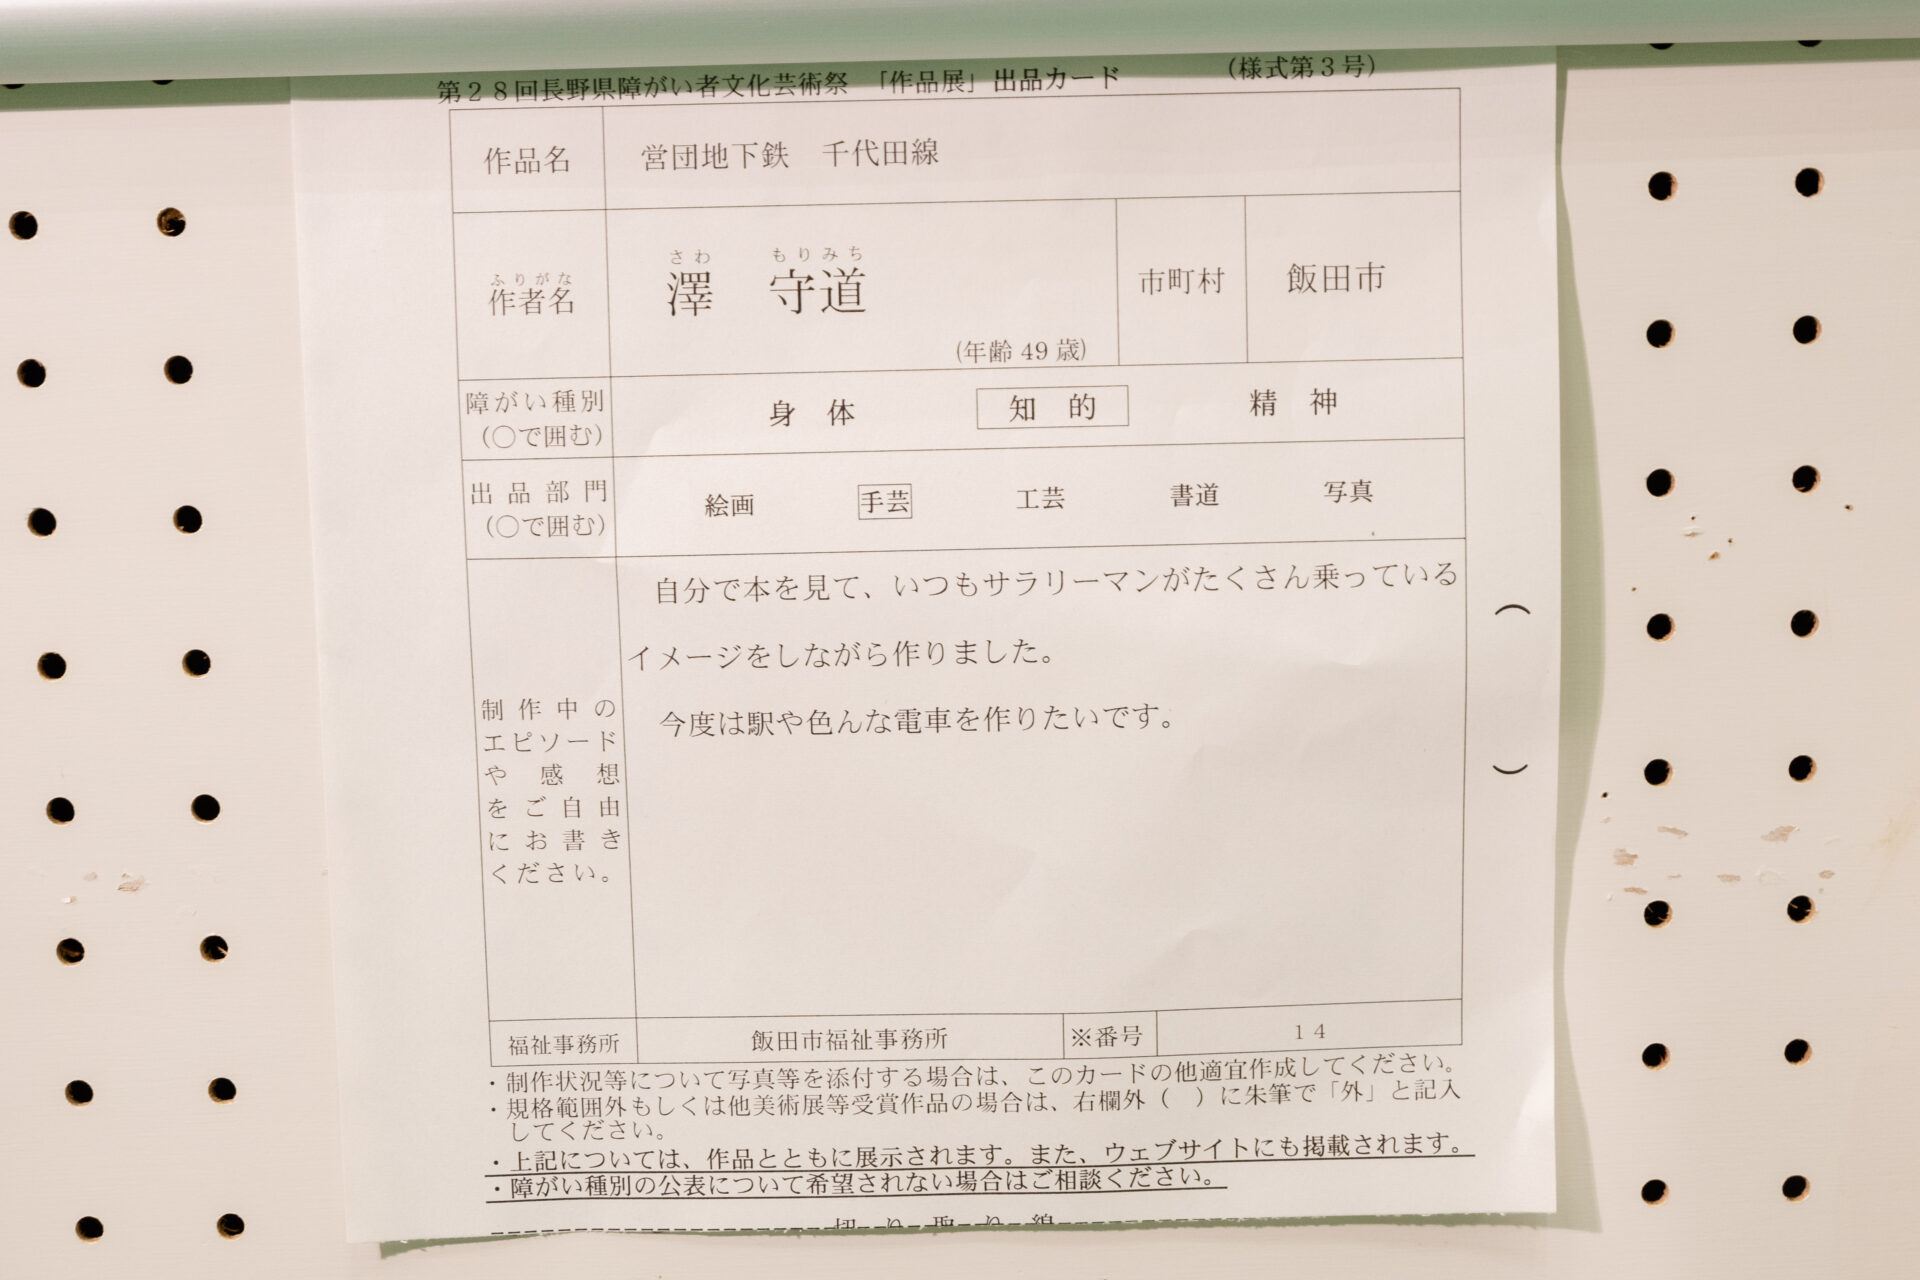 第28回長野県障がい者文化芸術祭 「作品展」出品カード (様式第3号)
作品名 営団地下鉄 千代田線
ふりがな さわ もりみち
作者名 澤 守道 市町村 飯田市
(年齢 49 歳)
障がい種別 身 体 知 的 精 神
(〇で囲む)
出品部門 絵画 手芸 工芸 書道 写真
(〇で囲む)
制作中の
エピソード
や感想
をご自由
にお書き
ください。
自分で本を見て、いつもサラリーマンがたくさん乗っている
イメージをしながら作りました。
今度は駅や色んな電車を作りたいです。
( )
福祉事務所 飯田市福祉事務所 ※番号 14
・制作状況等について写真等を添付する場合は、このカードの他適宜作成してください。
・規格範囲外もしくは他美術展等受賞作品の場合は、右欄外( )に朱筆で「外」と記入
してください。
・上記については、作品とともに展示されます。また、ウェブサイトにも掲載されます。
・障がい種別の公表について希望されない場合はご相談ください。
切り取り線